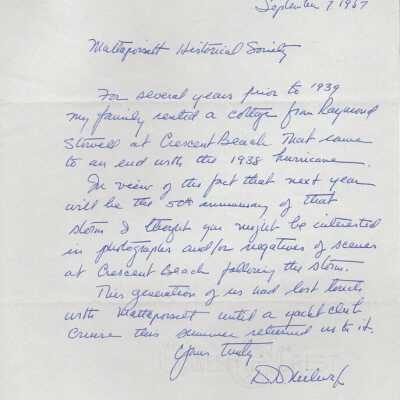 September 7 1987
Mattapoisett Historical Society
For several years prior to 1939
my family rented a cottage from Raymond
Stowell at Crescent Beach That came
to an end with the 1938 hurricane.
In view of the fact that next year
will be the 50th anniversary of that
storm I thought you might be interested
in photographs and/or negatives of scenes
at Crescent Beach following the storm.
This generation of us had lost touch
with Mattapoisett until a yacht club
cruise this summer returned us to it.
Yours truly